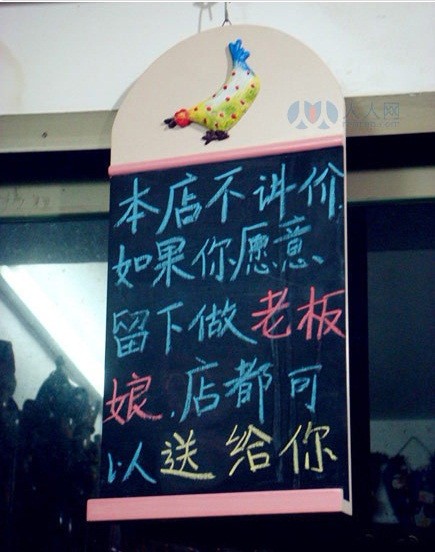 本店不讲价
如果你愿意
留下做老板
娘.店都可
以送给你
人人网